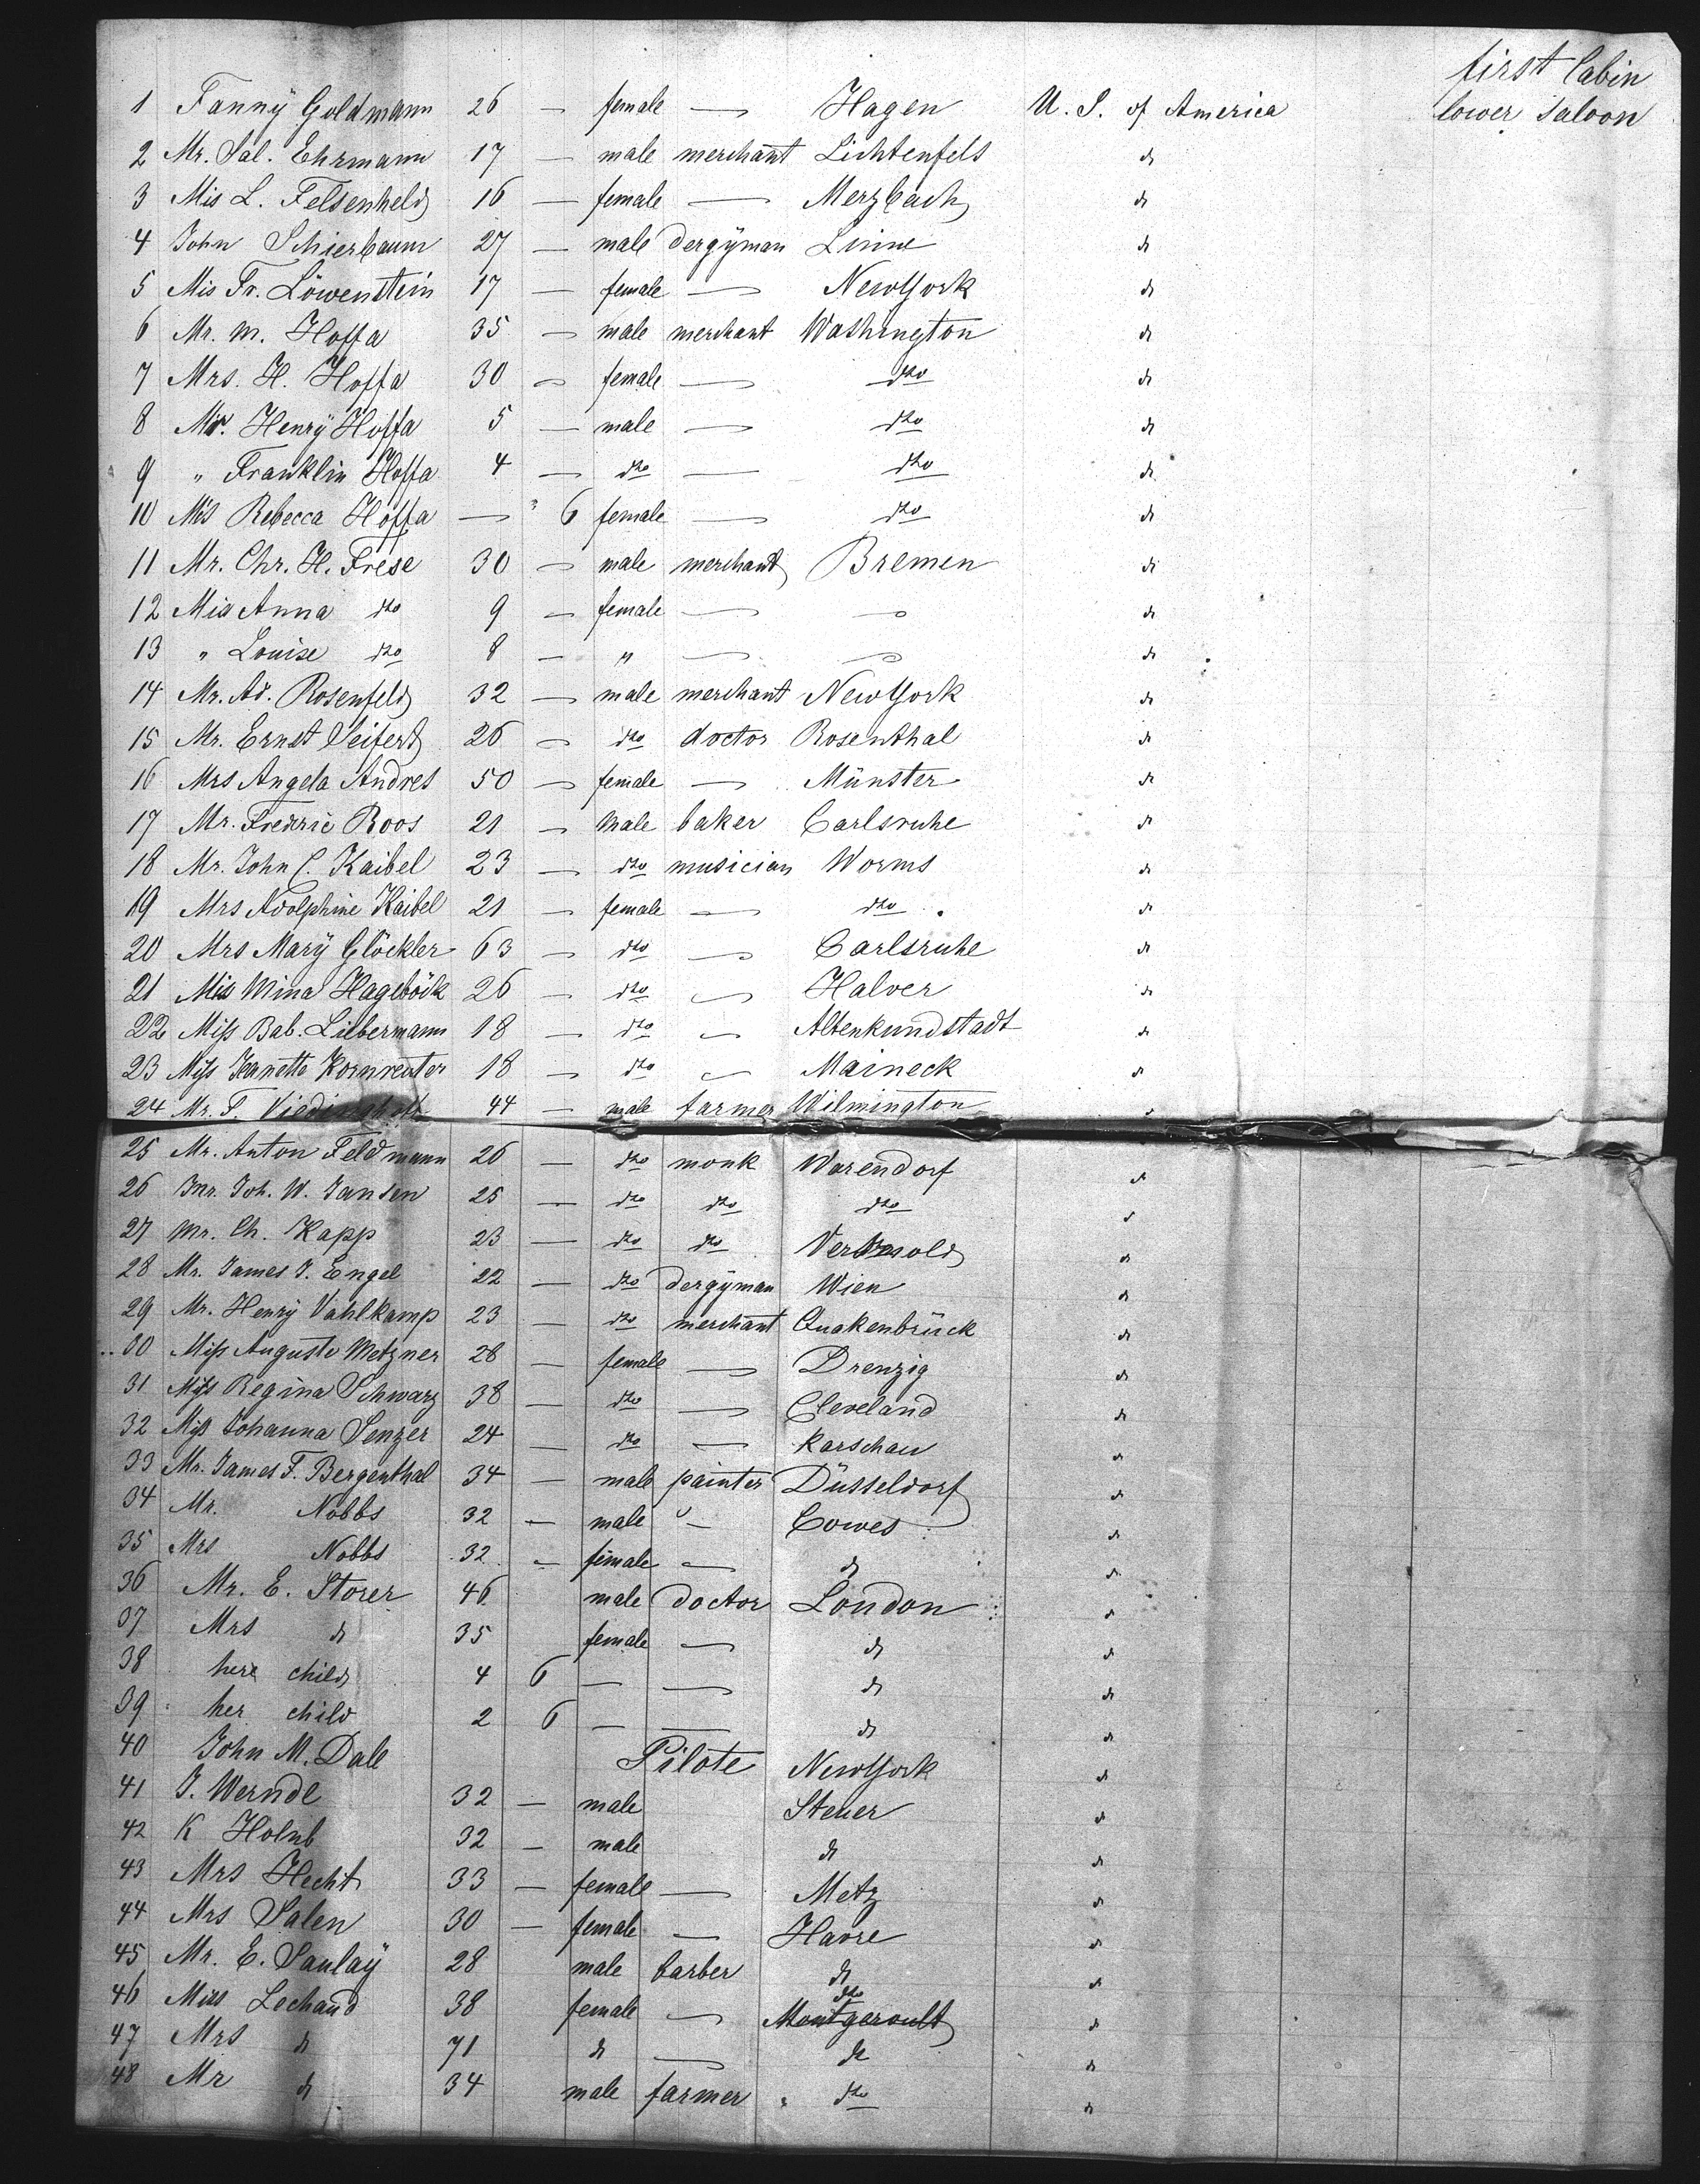 first Cabin
1 Fanny Goldmann 26 — female — Hagen U. S. of America lower saloon
2 Mr. Sal. Ehrmann 17 — male merchant Lichtenfels do
3 Mis L. Felsenheld 16 — female — Merzbach do
4 John Schierbaum 27 — male clergyman Linne do
5 Mis Fr. Löwenstein 17 — female — NewYork do
6 Mr. M. Hoffa 35 — male merchant Washington do
7 Mrs. H. Hoffa 30 — female — dto do
8 Mr. Henry Hoffa 5 — male — dto do
9 " Franklin Hoffa 4 — dto — dto do
10 Mis Rebecca Hoffa — " 6 female — dto do
11 Mr. Chr. H. Frese 30 — male merchant Bremen do
12 Mis Anna dto 9 — female — — do
13 " Louise dto 8 — " — — do
14 Mr. Ad. Rosenfeld 32 — male merchant NewYork do
15 Mr. Ernst Seifert 26 — dto doctor Rosenthal do
16 Mrs Angela Andres 50 — female — Münster do
17 Mr. Frederic Roos 21 — male baker Carlsruhe do
18 Mr. John C. Kaibel 23 — dto musician Worms do
19 Mrs Adolphine Kaibel 21 — female — dto do
20 Mrs Mary Glöckler 63 — dto — Carlsruhe do
21 Mis Mina Hageböck 26 — dto — Halver do
22 Miss Bab. Liebermann 18 — dto — Altenkundstadt do
23 Miss Jeanette Kornreuter 18 — dto — Maineck do
24 Mr. 44 — male farmer Wilmington do
25 Mr. Anton Feldmann 26 — dto monk Warendorf do
26 Mr. Joh. W. Jansen 25 — dto dto dto do
27 Mr. Ch. Kapp 23 — dto dto do
28 Mr. James J. Engel 22 — dto clergyman Wien do
29 Mr. Henry Vahlkamp 23 — dto merchant Quakenbrück do
30 Miss Auguste Metzner 28 — female — Drenzig do
31 Miss Regina Schwarz 38 — dto — Cleveland do
32 Miss Johanna Senzer 24 — dto — Karschau do
33 Mr. James F. Bergenthal 34 — male painter Düsseldorf do
34 Mr. Nobbs 32 — male — Cowes do
35 Mrs Nobbs 32 — female — do do
36 Mr. E. Storer 46 male doctor London do
37 Mrs do 35 female — do do
38 her child 4 6 — — do do
39 her child 2 6 — — do do
40 John M. Dale Pilote NewYork do
41 J. Werndl 32 — male Steuer do
42 K Holub 32 — male do do
43 Mrs Hecht 33 — female — Metz do
44 Mrs Salen 30 — female — Havre do
45 Mr. E. Saulay 28 male barber do do
46 Miss Lechaud 38 female — dto Montgeroult do
47 Mrs do 71 do — do do
48 Mr do 34 male farmer " dto do